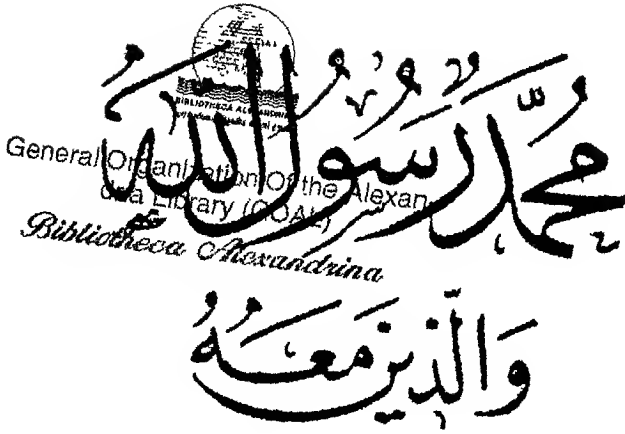 مُحَمَّدٌ رَسُولُ اللَّهِ
وَالَّذِينَ مَعَهُ
BIBLIOTHECA ALEXANDRINA
General Organization Of the Alexan-
dria Library (GOAL)
Bibliotheca Alexandrina